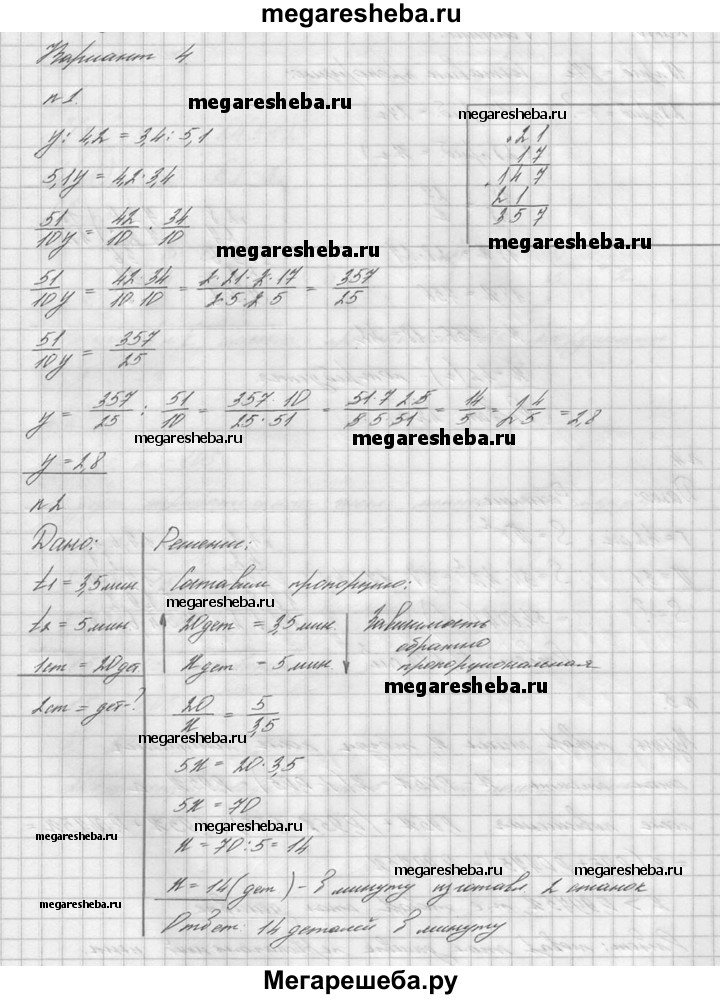 megaresheba.ru
Вариант 4
n 1.
megaresheba.ru
megaresheba.ru
y : 4,2 = 3,4 : 5,1
5,1y = 4,2 · 3,4
21
17
147
21
357
51/10 y = 42/10 · 34/10
megaresheba.ru
megaresheba.ru
51/10 y = 42·34/10·10 = 2·21·2·17/2·5·2·5 = 357/25
51/10 y = 357/25
y = 357/25 : 51/10 = 357·10/25·51 = 51·7·2·5/5·5·51 = 14/5 = 2 4/5 = 2,8
megaresheba.ru
megaresheba.ru
y = 2,8
n 2
Дано:
t1 = 3,5 мин
t2 = 5 мин
1ст = 20 дет
2ст = дет-?
Решение:
Составим пропорцию:
megaresheba.ru
20 дет = 3,5 мин.
x дет - 5 мин.
Зависимость
обратно
пропорциональная
megaresheba.ru
20/x = 5/3,5
megaresheba.ru
5x = 20 · 3,5
5x = 70
megaresheba.ru
megaresheba.ru
x = 70 : 5 = 14
megaresheba.ru
megaresheba.ru
x = 14 (дет) - в минуту изготавл 2 станок
megaresheba.ru
Ответ: 14 деталей в минуту
Мегарешеба.ру